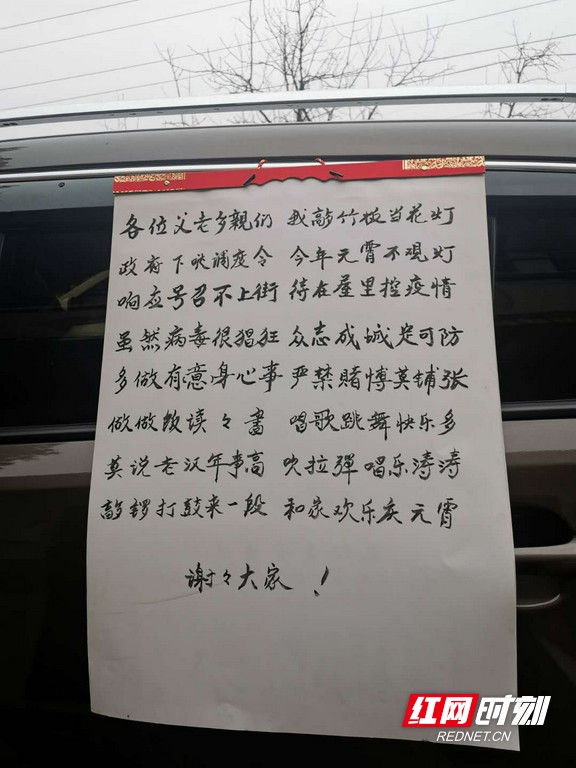 各位父老乡親们 我敲竹板当花灯
政府下 令 今年元宵不观灯
响应号召不上街 待在屋里控疫情
虽然病毒很猖狂 众志成城定可防
多做有意身心事 严禁赌博莫铺张
做做饭读々書 唱歌跳舞快乐多
莫说老汉年事高 吹拉弹唱乐涛涛
敲锣打鼓来一段 和家欢乐庆元宵
谢々大家!
红网时刻
REDNET.CN